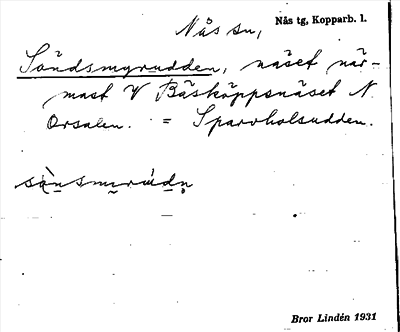 Nås sn,
Nås tg, Kopparb. l.
Sändsmyrudden, näset när-
mast V Bäsköppsnäset N
Orsalen. = Sparvholsudden.
sä̀nsmyrúdn
Bror Lindén 1931